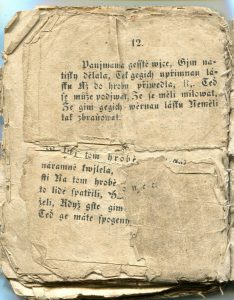 12.
Panjmama geisstě wjce, Gjm na-
tisky dělala, Tet gegich upřimnau lá-
sku Až do hrobu přiwedla, :,: Teď
se může podjwat, Že je měli milowat,
Že gim gegich wěrnau lásku Neměli
tak zbraňowat.
tom hrobě
náramně kwjlela,
sti Na tom hrobě
to lidé spatřili,
želi, Když gste gim
Teď ge máte spogeny